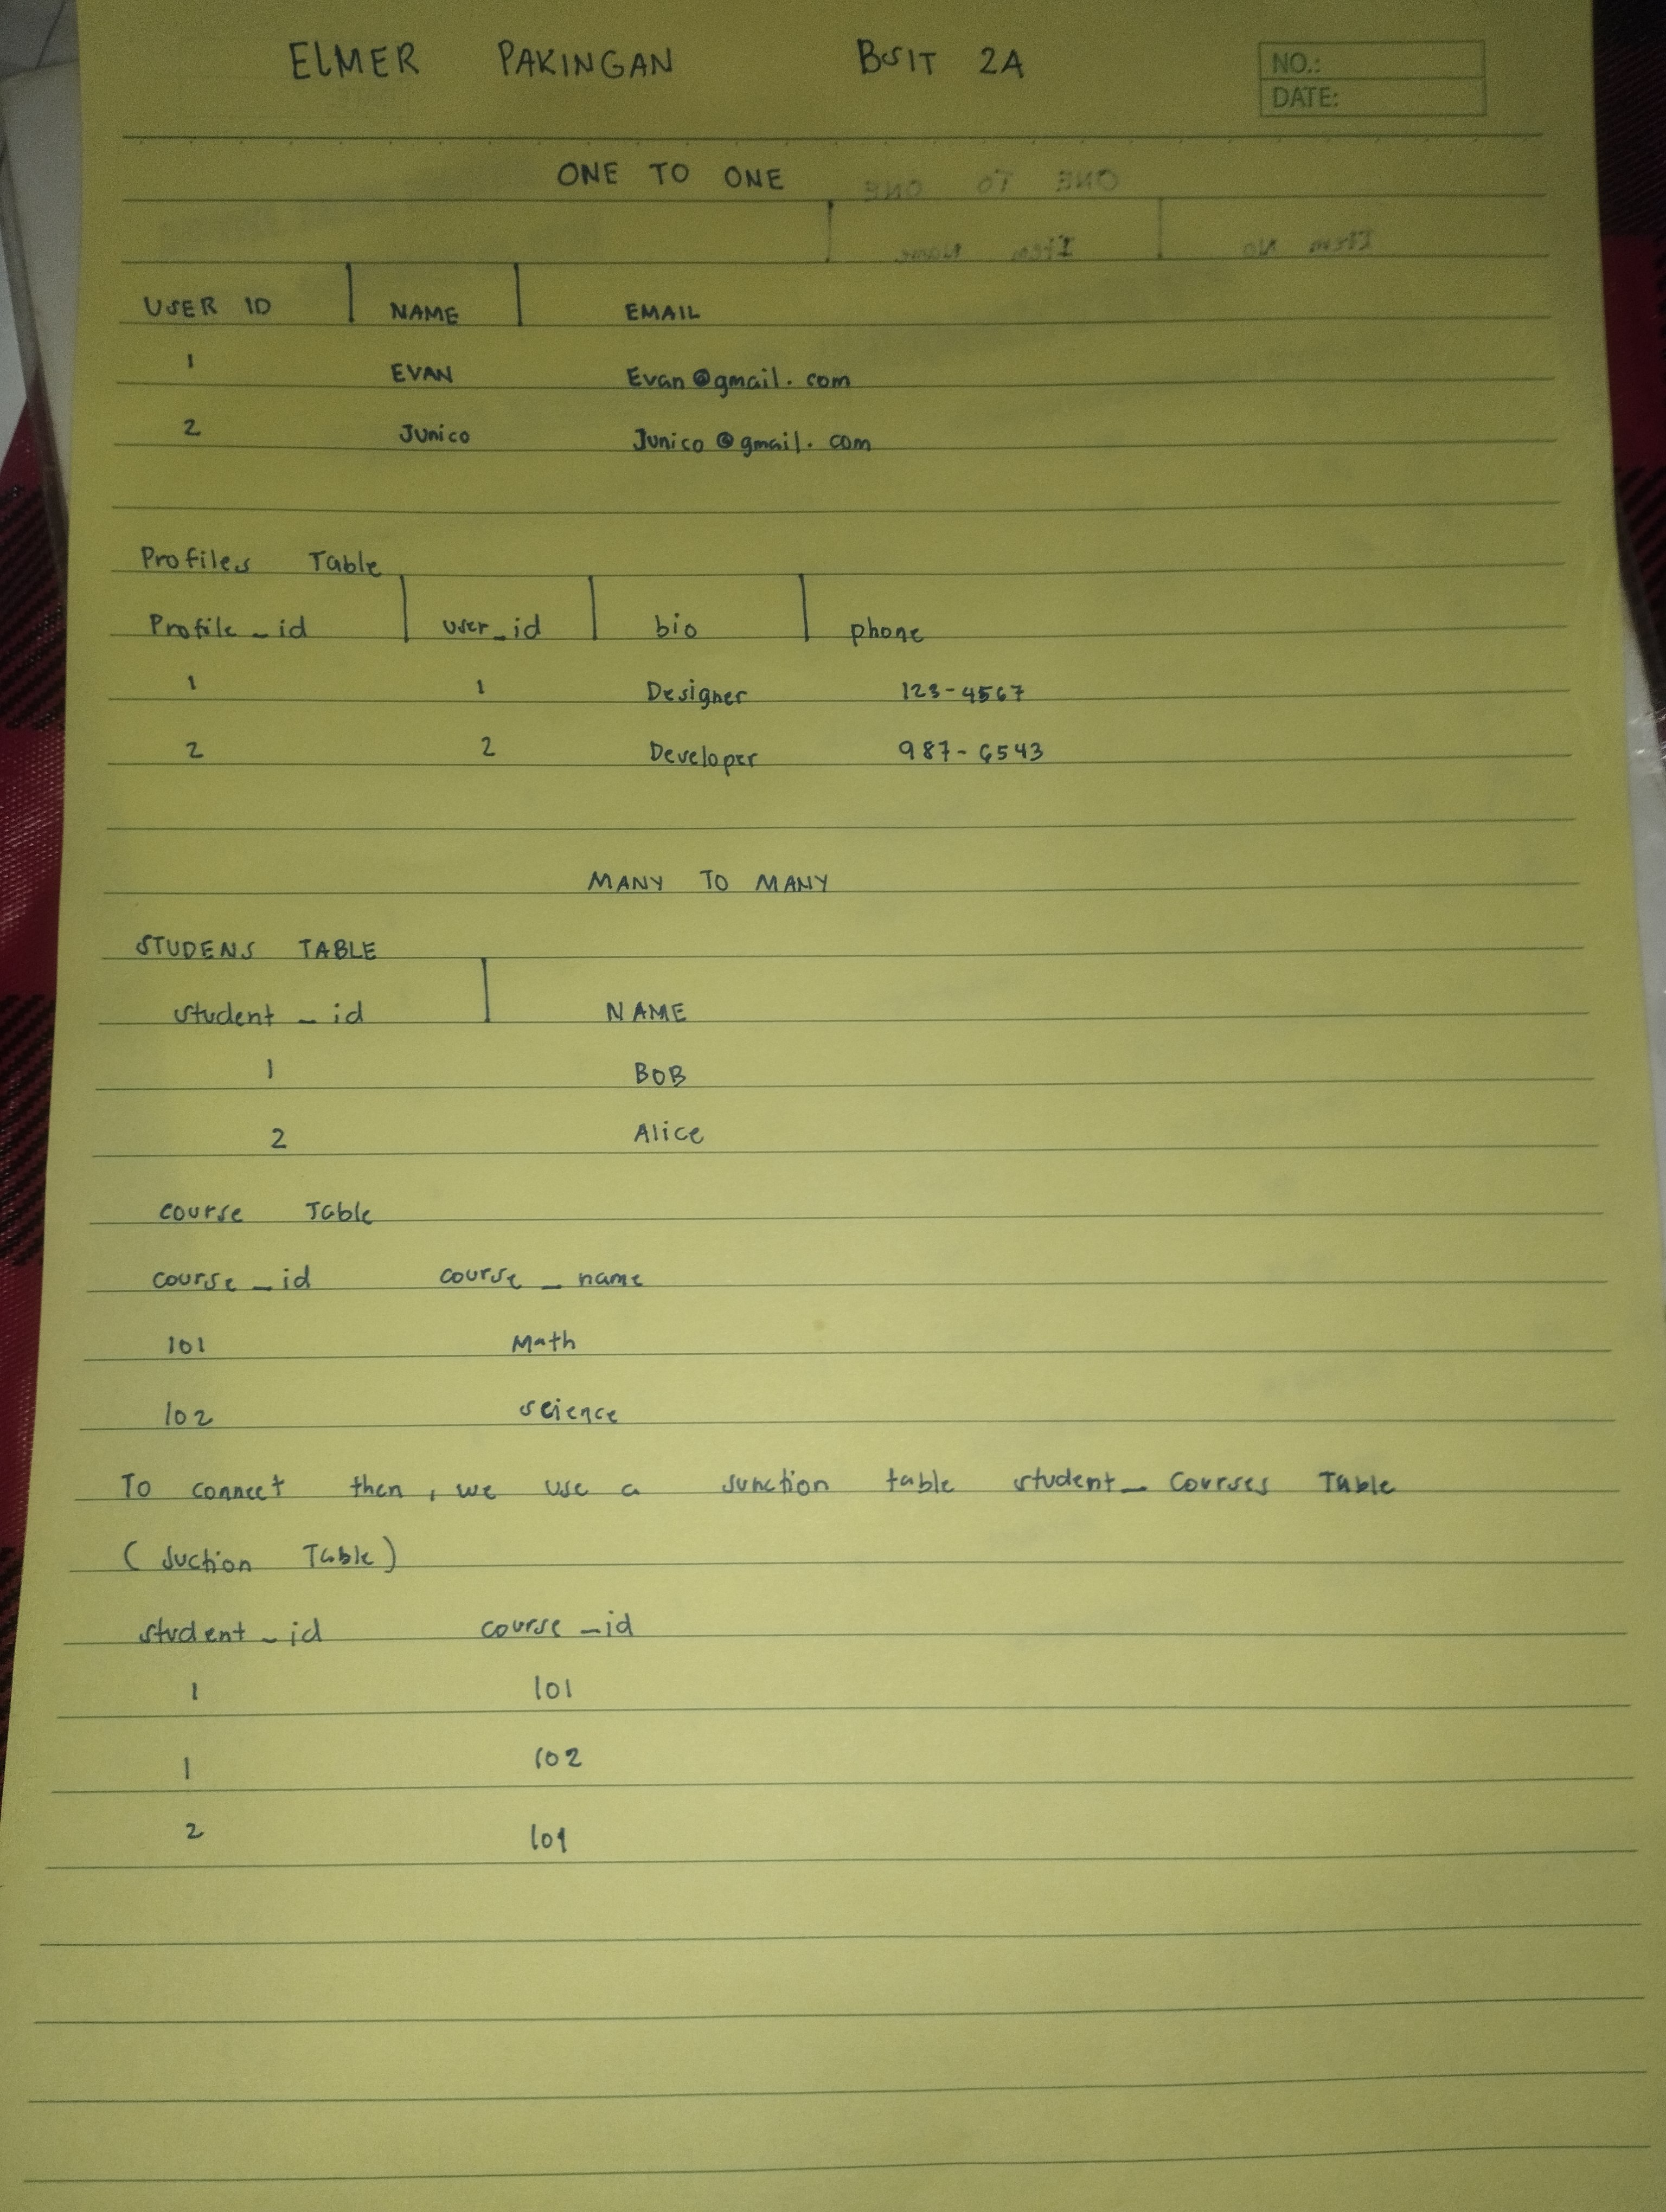 ELMER PAKINGAN BSIT 2A
NO.:
DATE:
ONE TO ONE
ONE TO ONE
Item No Item Name
USER ID NAME EMAIL
1 EVAN Evan@gmail.com
2 Junico Junico@gmail.com
Profiles Table
Profile_id user_id bio phone
1 1 Designer 123-4567
2 2 Developer 987-6543
MANY TO MANY
STUDENS TABLE
student_id NAME
1 BOB
2 Alice
course Table
course_id course_name
101 Math
102 science
To connect then, we use a Junction table student_Courses Table
(Juction Table)
student_id course_id
1 101
1 102
2 101